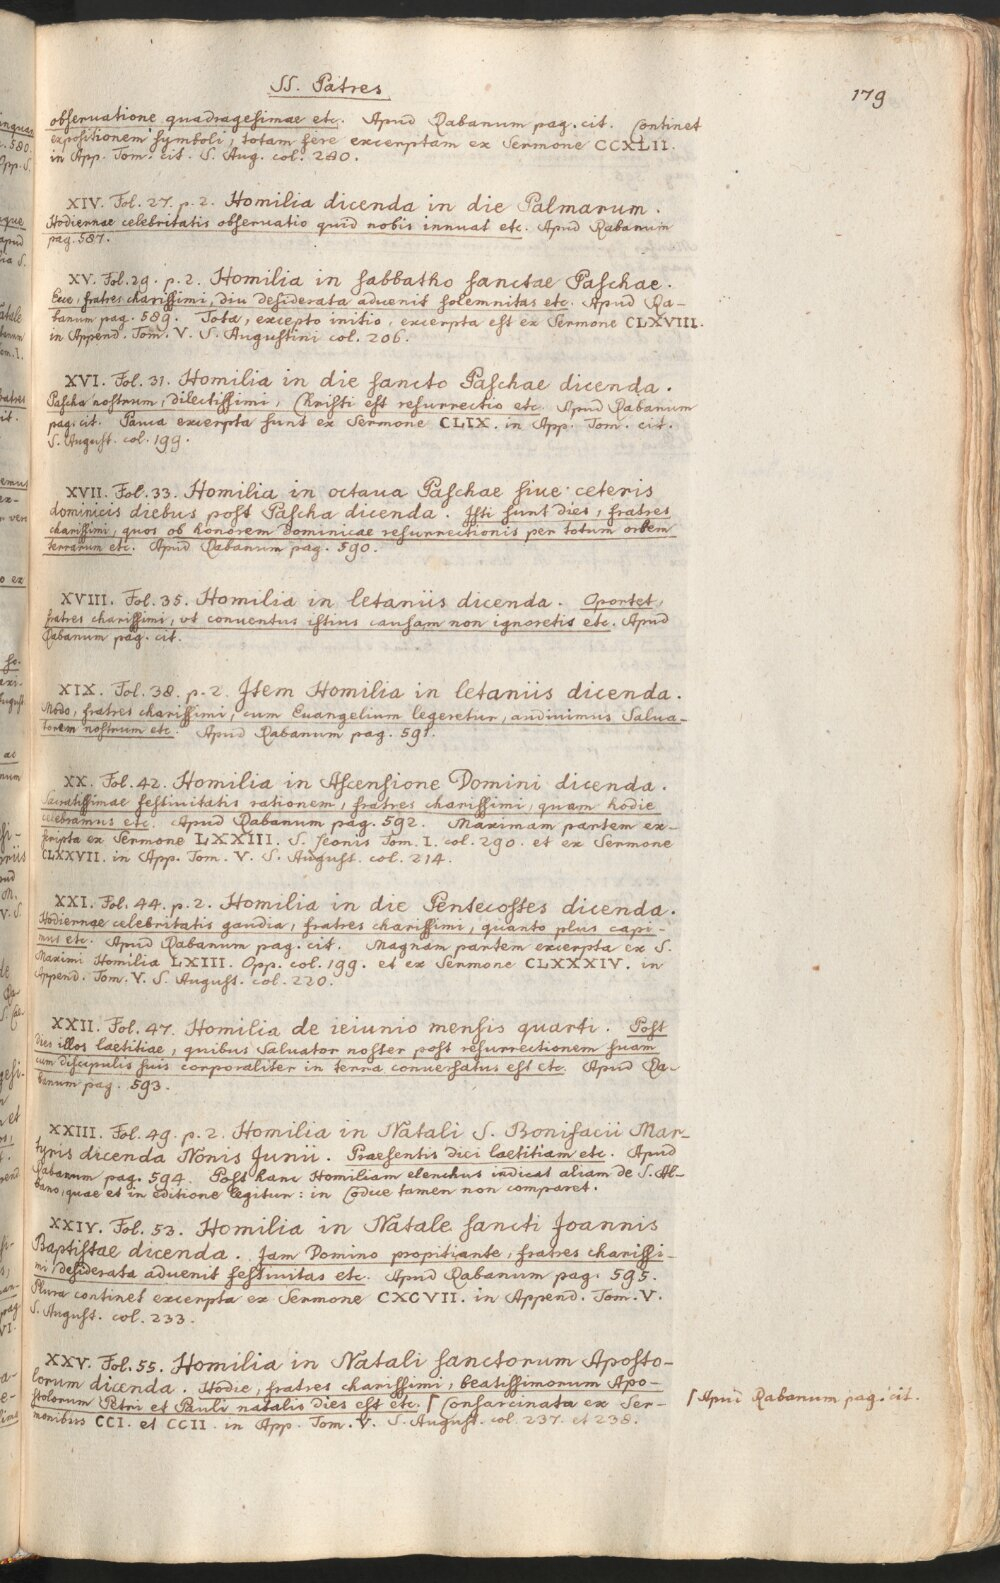 SS. Patres
179
obseruatione quadragesimae etc. Apud Rabanum pag. cit. Continet
expositionem symboli, totam fere excerptam ex Sermone CCXLII.
in App. Tom. cit. S. Aug. col. 280.
XIV. Fol. 27. p. 2. Homilia dicenda in die Palmarum.
Hodiernae celebritatis obseruatio quid nobis innuat etc. Apud Rabanum
pag. 587.
XV. Fol. 29. p. 2. Homilia in sabbatho sanctae Paschae.
Ecce, fratres charissimi, diu desiderata aduenit solemnitas etc. Apud Ra-
banum pag. 589. Tota, excepto initio, excerpta est ex Sermone CLXVIII.
in Append. Tom. V. S. Augustini col. 206.
XVI. Fol. 31. Homilia in die sancto Paschae dicenda.
Pascha nostrum, dilectissimi, Christi est resurrectio etc. Apud Rabanum
pag. cit. Pauca excerpta sunt ex Sermone CLIX. in App. Tom. cit.
S. August. col. 199.
XVII. Fol. 33. Homilia in octaua Paschae siue ceteris
dominicis diebus post Pascha dicenda. Isti sunt dies, fratres
charissimi, quos ob honorem Dominicae resurrectionis per totum orbem
terrarum etc. Apud Rabanum pag. 590.
XVIII. Fol. 35. Homilia in letaniis dicenda. Oportet,
fratres charissimi, vt conuentus istius causam non ignoretis etc. Apud
Rabanum pag. cit.
XIX. Fol. 38. p. 2. Item Homilia in letaniis dicenda.
Modo, fratres charissimi, cum Euangelium legeretur, audiuimus Salua-
torem nostrum etc. Apud Rabanum pag. 591.
XX. Fol. 42. Homilia in Ascensione Domini dicenda.
Sacratissimae festiuitatis rationem, fratres charissimi, quam hodie
celebramus etc. Apud Rabanum pag. 592. Maximam partem ex-
scripta ex Sermone LXXIII. S. Leonis Tom. I. col. 290. et ex Sermone
CLXXVII. in App. Tom. V. S. August. col. 214.
XXI. Fol. 44. p. 2. Homilia in die Pentecostes dicenda.
Hodiernae celebritatis gaudia, fratres charissimi, quanto plus capi-
mus etc. Apud Rabanum pag. cit. Magnam partem excerpta ex S.
Maximi Homilia LXIII. Opp. col. 199. et ex Sermone CLXXXIV. in
Append. Tom. V. S. August. col. 220.
XXII. Fol. 47. Homilia de ieiunio mensis quarti. Post
dies illos laetitiae, quibus Saluator noster post resurrectionem suam
cum discipulis suis corporaliter in terra conuersatus est etc. Apud Ra-
banum pag. 593.
XXIII. Fol. 49. p. 2. Homilia in Natali S. Bonifacii Mar-
tyris dicenda Nonis Junii. Praesentis diei laetitiam etc. Apud
Rabanum pag. 594. Post hanc Homiliam elenchus indicat aliam de S. Al-
bano, quae et in editione legitur: in Codice tamen non comparet.
XXIV. Fol. 53. Homilia in Natale sancti Joannis
Baptistae dicenda. Jam Domino propitiante, fratres charissi-
mi, desiderata aduenit festiuitas etc. Apud Rabanum pag. 595.
Plura continet excerpta ex Sermone CXCVII. in Append. Tom. V.
S. August. col. 233.
XXV. Fol. 55. Homilia in Natali sanctorum Aposto-
lorum dicenda. Hodie, fratres charissimi, beatissimorum Apo-
stolorum Petri et Pauli natalis dies est etc. ⌈ Consarcinata ex Ser-
monibus CCI. et CCII. in App. Tom. V. S. August. col. 237. et 238.
⌈ Apud Rabanum pag. cit.